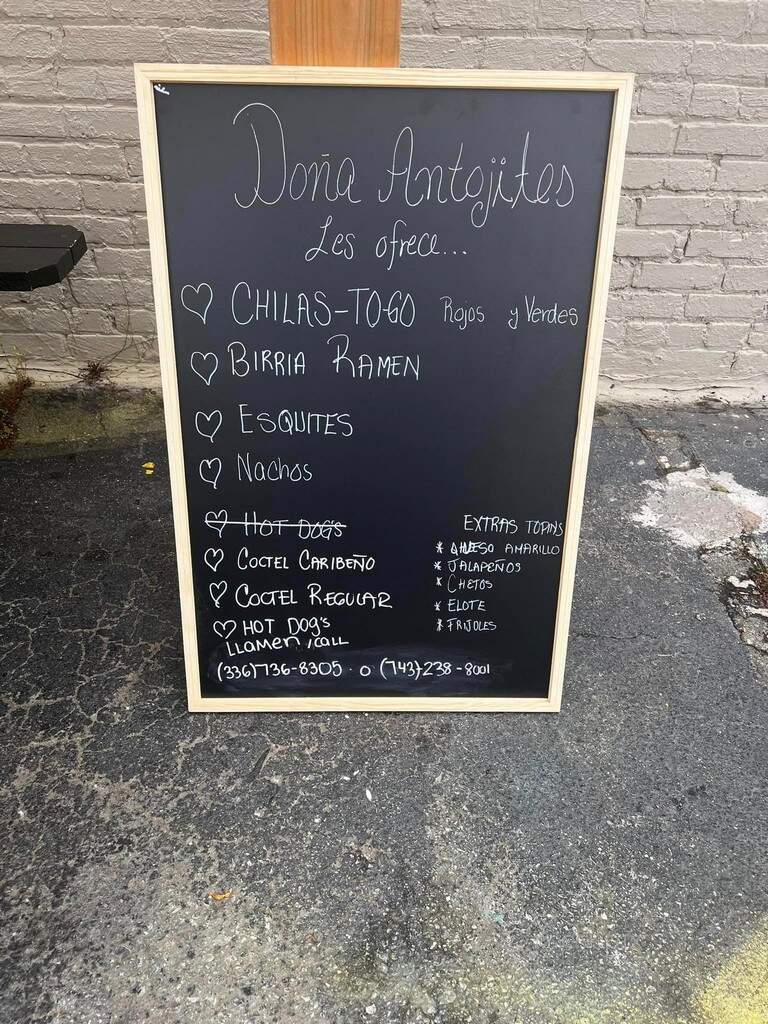 Doña Antojitos
Les ofrece...
CHILAS-TOGO Rojos y Verdes
BIRRIA RAMEN
ESQUITES
Nachos
HOT DOG'S
COCTEL CARIBEÑO
COCTEL REGULAR
HOT DOG's
LLAMEN/CALL
(336)736-8305 o (743)-238-8001
EXTRAS TOPINS
* QUESO AMARILLO
* JALAPEÑOS
* CHETOS
* ELOTE
* FRIJOLES